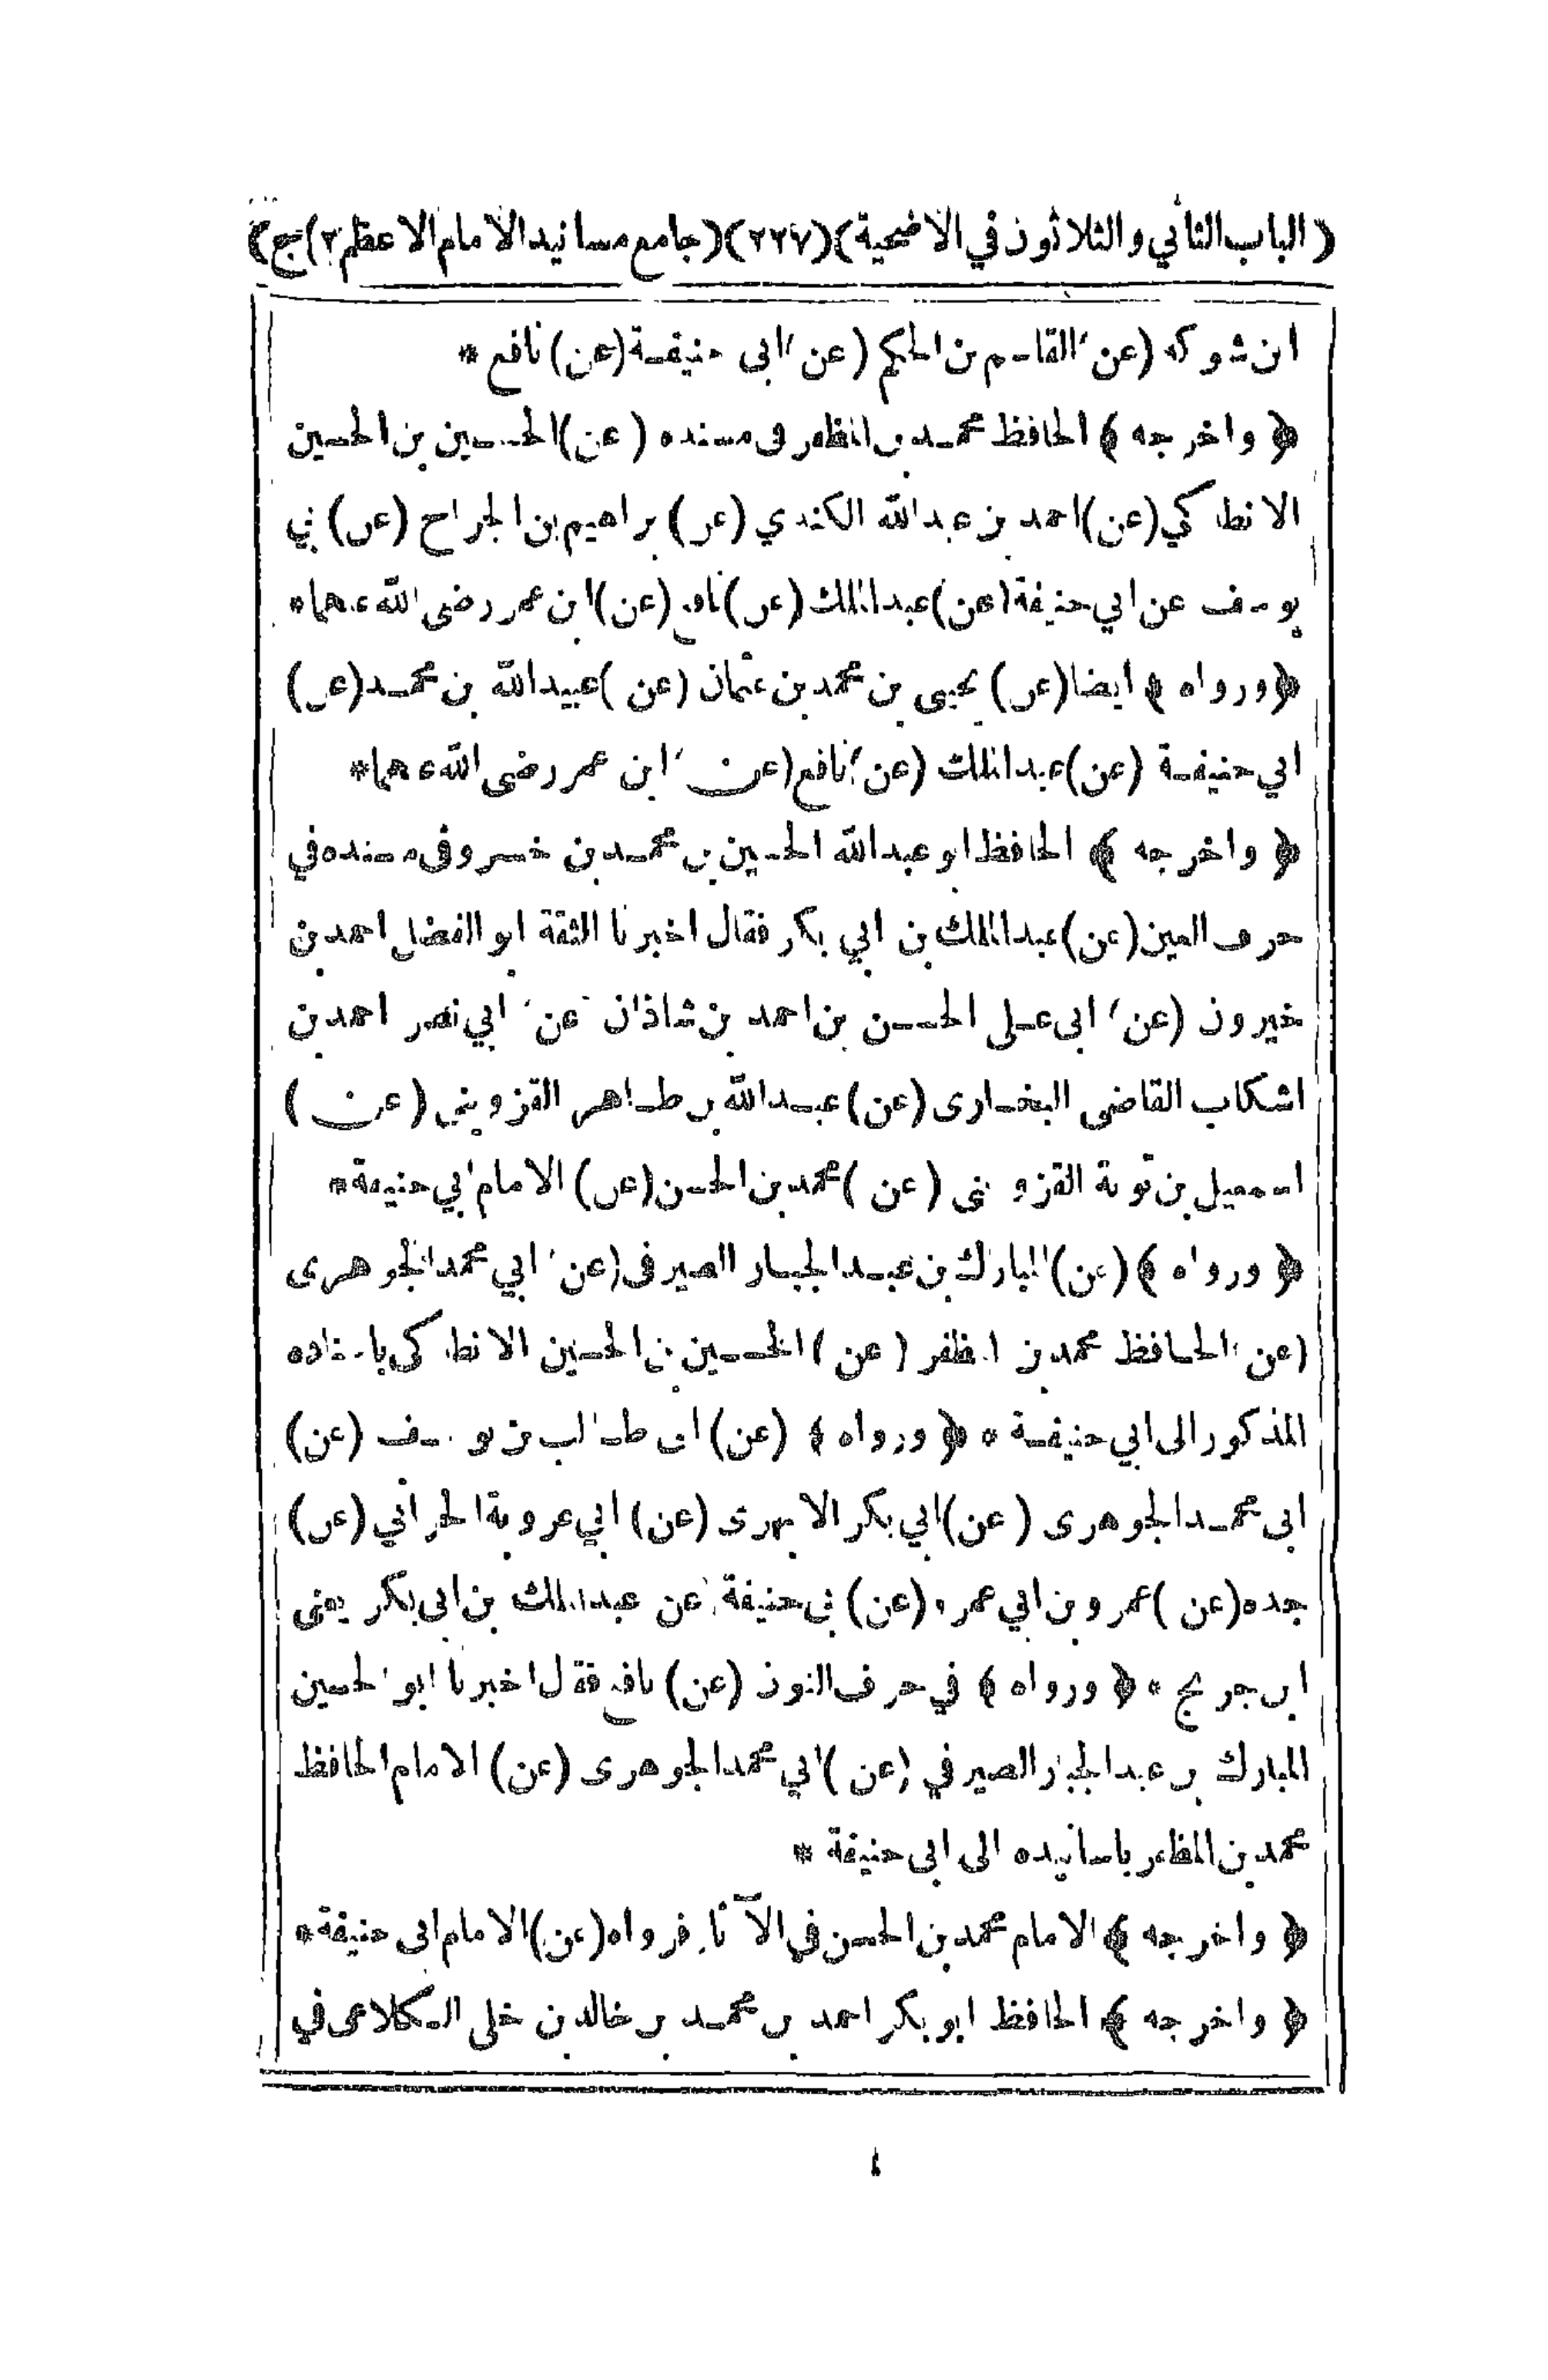 (الباب الثاني والثلاثون في الاضحية)(٢٢٧)(جامع مسانيد الامام الاعظم ٢)ج)
ابن شوكه (عن) القاسم بن الحكم (عن) ابى حنيفة (عن) نافع *
﴿ واخرجه ﴾ الحافظ محمد بن المظفر فى مسنده (عن) الحسين بن الحسين
الانطاكي (عن) احمد بن عبد الله الكندي (عن) ابراهيم بن الجراح (عن) ابي
يوسف عن ابي حنيفة (عن) عبد الملك (عن) نافع (عن) ابن عمر رضى الله عنهما *
﴿ ورواه ﴾ ايضا (عن) يحيى بن محمد بن عثمان (عن) عبيد الله بن محمد (عن)
ابي حنيفة (عن) عبد الملك (عن) نافع (عن) ابن عمر رضى الله عنهما *
﴿ واخرجه ﴾ الحافظ ابو عبد الله الحسين بن محمد بن خسرو فى مسنده في
حرف العين (عن) عبد الملك بن ابي بكر فقال اخبرنا الثقة ابو الفضل احمد بن
خيرون (عن) ابى على الحسن بن احمد بن شاذان (عن) ابي نصر احمد بن
اشكاب القاضى البخارى (عن) عبد الله بن طاهر القزوينى (عن)
اسمعيل بن توبة القزوينى (عن) محمد بن الحسن (عن) الامام ابي حنيفة *
﴿ ورواه ﴾ (عن) المبارك بن عبد الجبار الصيرفى (عن) ابي محمد الجوهرى
(عن) الحافظ محمد بن المظفر (عن) الحسين بن الحسين الانطاكى باسناده
المذكور الى ابي حنيفة * ﴿ ورواه ﴾ (عن) ابى طالب بن يوسف (عن)
ابى محمد الجوهرى (عن) ابي بكر الابهرى (عن) ابي عروبة الحراني (عن)
جده (عن) عمرو بن ابي عمرو (عن) ابى حنيفة عن عبد الملك بن ابى بكر يعنى
ابن جريج * ﴿ ورواه ﴾ في حرف النون (عن) نافع فقال اخبرنا ابو الحسين
المبارك بن عبد الجبار الصيرفي (عن) ابي محمد الجوهرى (عن) الامام الحافظ
محمد بن المظفر باسانيده الى ابى حنيفة *
﴿ واخرجه ﴾ الامام محمد بن الحسن في الآثار فرواه (عن) الامام ابى حنيفة *
﴿ واخرجه ﴾ الحافظ ابو بكر احمد بن محمد بن خالد بن خلى الكلاعى في